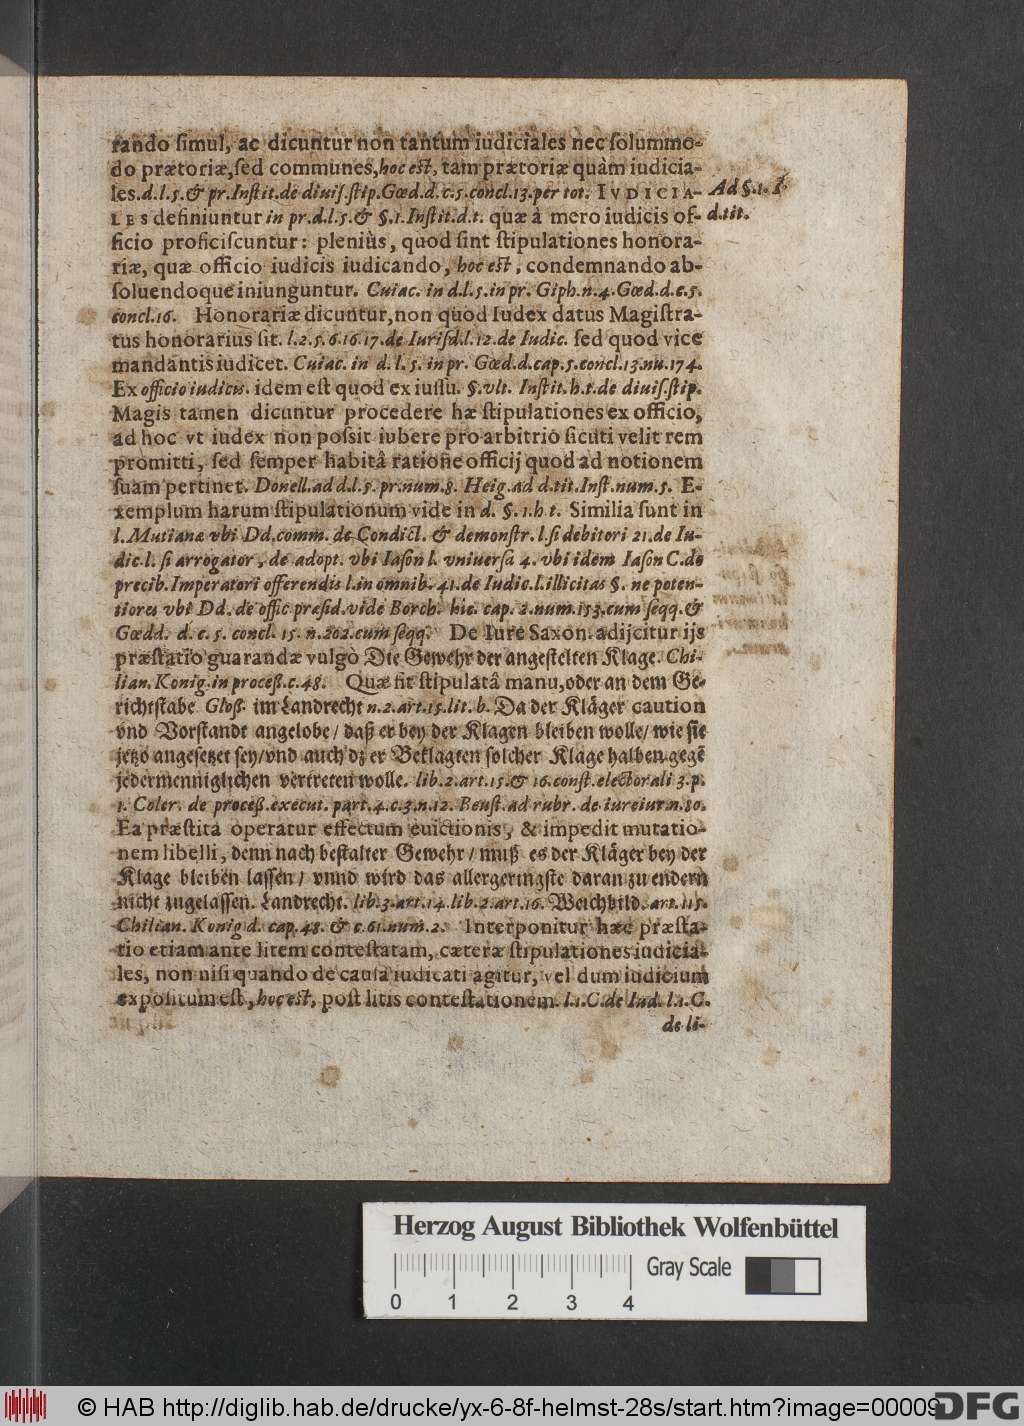 rando simul, ac dicuntur non tantum iudiciales nec solummo-
do prætoriæ, sed communes, hoc est, tam prætoriæ quàm iudicia-
les. d.l.5. & pr. Instit. de diuis. stip. Gœd. d. c. 5. concl. 13. per tot. IVDICIA-
LES definiuntur in pr. d. l. 5. & §. 1. Instit. d. t. quæ à mero iudicis of-
Ad §. 1. I.
d. tit.
ficio proficiscuntur: pleniùs, quod sint stipulationes honora-
riæ, quæ officio iudicis iudicando, hoc est, condemnando ab-
soluendoque iniunguntur. Cuiac. in d. l. 5. in pr. Giph. n. 4. Gœd. d. c. 5.
concl. 16. Honorariæ dicuntur, non quod Iudex datus Magistra-
tus honorarius sit. l. 2. 5. 6. 16. 17. de Iurisd. l. 12. de Iudic. sed quod vice
mandantis iudicet. Cuiac. in d. l. 5. in pr. Gœd. d. cap. 5. concl. 13. nu. 174.
Ex officio iudicis. idem est quod ex iussu. §. vlt. Instit. h. t. de diuis. stip.
Magis tamen dicuntur procedere hæ stipulationes ex officio,
ad hoc vt iudex non possit iubere pro arbitrio sicuti velit rem
promitti, sed semper habitâ ratione officij quod ad notionem
suam pertinet. Donell. ad d. l. 5. pr. num. 8. Heig. ad d. tit. Inst. num. 5. E-
xemplum harum stipulationum vide in d. §. 1. h. t. Similia sunt in
l. Mutianæ vbi Dd. comm. de Condict. & demonstr. l. si debitori 21. de Iu-
dic. l. si arrogator, de adopt. vbi Iason l. vniuersa 4. vbi idem Iason C. de
precib. Imperatori offerendis l. in omnib. 41. de Iudic. l. illicitas §. ne poten-
tiores vbi Dd. de offic præsid. vide Borch. hic. cap. 2. num. 153. cum seqq. &
Gœdd. d. c. 5. concl. 15. n. 202. cum seqq. De Iure Saxon. adijcitur ijs
præstatio guarandæ vulgò Die Gewehr der angestelten Klage. Chi-
lian. Konig. in proceß. c. 48. Quæ fit stipulatâ manu, oder an dem Ge-
richtstabe Gloß. im Landrecht n. 2. art. 15. lit. b. Da der Kläger caution
vnd Vorstandt angelobe / daß er bey der Klagen bleiben wolle / wie sie
jetzo angesetzet sey / vnd auch dz er Beklagten solcher Klage halben gegē
jedermenniglichen vertreten wolle. lib. 2. art. 15. & 16. const. electorali 3. p.
1. Coler. de proceß. execut. part. 4. c. 3. n. 12. Beust. ad rubr. de iureiur. n. 80.
Ea præstita operatur effectum euictionis, & impedit mutatio-
nem libelli, denn nach bestalter Gewehr / muß es der Kläger bey der
Klage bleiben lassen / vnnd wird das allergeringste daran zu endern
nicht zugelassen. Landrecht. lib. 3. art. 14. lib. 2. art. 16. Weichbild. art. 115.
Chilian. Konig d. cap. 48. & c. 61. num. 2. Interponitur hæc præsta-
tio etiam ante litem contestatam, cæteræ stipulationes iudicia-
les, non nisi quando de causa iudicati agitur, vel dum iudicium
expositum est, hoc est, post litis contestationem. l. 1. C. de Iud. l. 1. C.
de li-
Herzog August Bibliothek Wolfenbüttel
Gray Scale
0 1 2 3 4
© HAB http://diglib.hab.de/drucke/yx-6-8f-helmst-28s/start.htm?image=00009
DFG